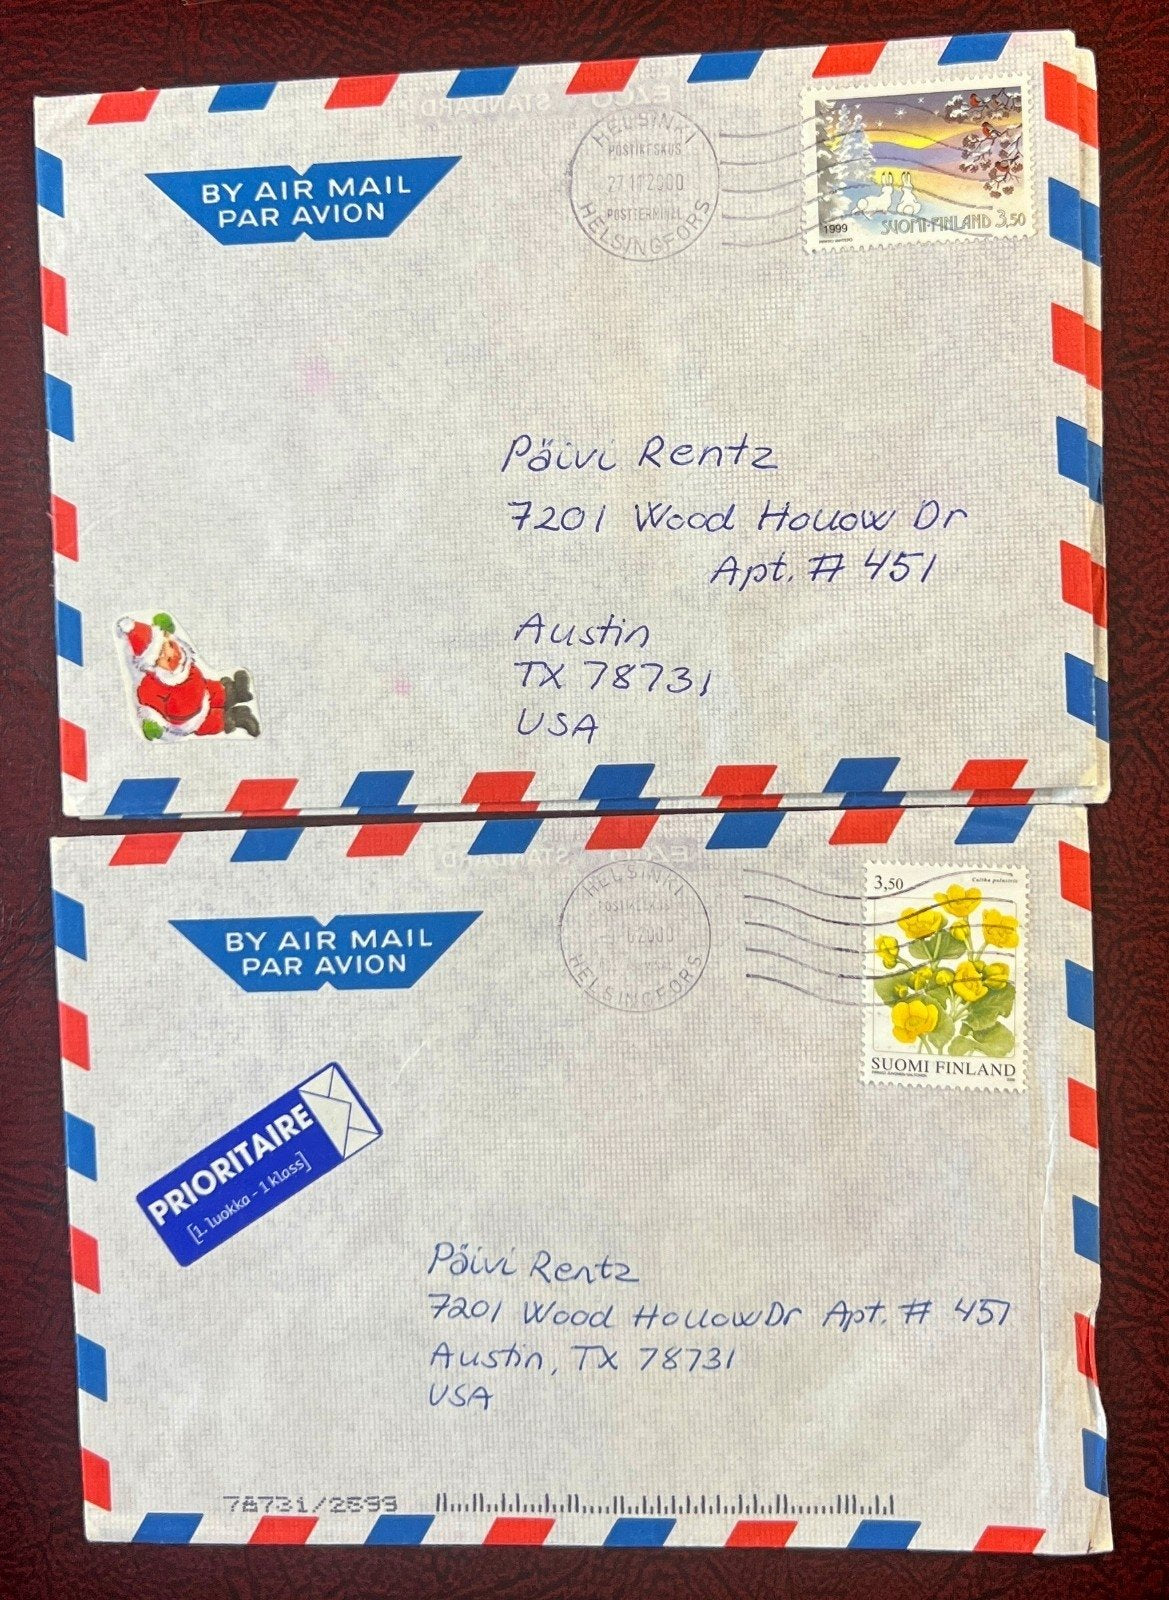 EZCO STANDARD
BY AIR MAIL
PAR AVION
HELSINKI
POSTIKESKUS
27.11.2000
POSTTERMINAL
HELSINGFORS
1999
SUOMI-FINLAND 3,50
Päivi Rentz
7201 Wood Hollow Dr
Apt. # 451
Austin
TX 78731
USA
EZCO STANDARD
BY AIR MAIL
PAR AVION
HELSINKI
2000
HELSINGFORS
3,50
Caltha palustris
SUOMI FINLAND
2000
PRIORITAIRE
[1. luokka - 1 klass]
Päivi Rentz
7201 Wood Hollow Dr Apt. # 451
Austin, TX 78731
USA
78731/2899